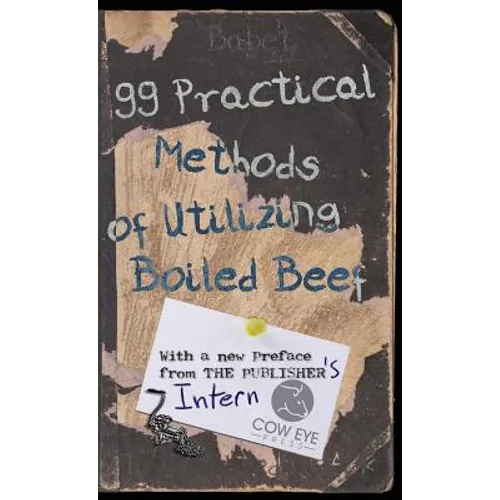 Babet
99 Practical
Methods
of Utilizing
Boiled Beef
With a new Preface
from THE PUBLISHER's
Intern
COW EYE
PRESS